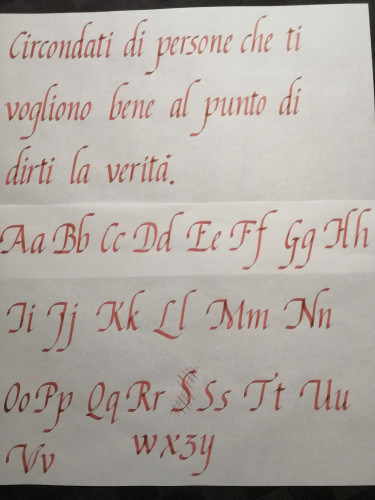 Circondati di persone che ti
vogliono bene al punto di
dirti la verità.
Aa Bb Cc Dd Ee Ff Gg Hh
Ii Jj Kk Ll Mm Nn
Oo Pp Qq Rr Ss Tt Uu
Vv wxzy